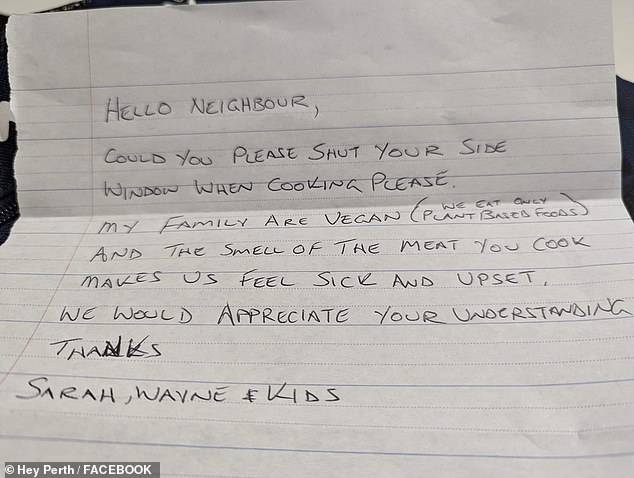 HELLO NEIGHBOUR,
COULD YOU PLEASE SHUT YOUR SIDE
WINDOW WHEN COOKING PLEASE.
MY FAMILY ARE VEGAN (WE EAT ONLY PLANT BASED FOODS)
AND THE SMELL OF THE MEAT YOU COOK
MAKES US FEEL SICK AND UPSET.
WE WOULD APPRECIATE YOUR UNDERSTANDING
THANKS
SARAH, WAYNE & KIDS
© Hey Perth / FACEBOOK